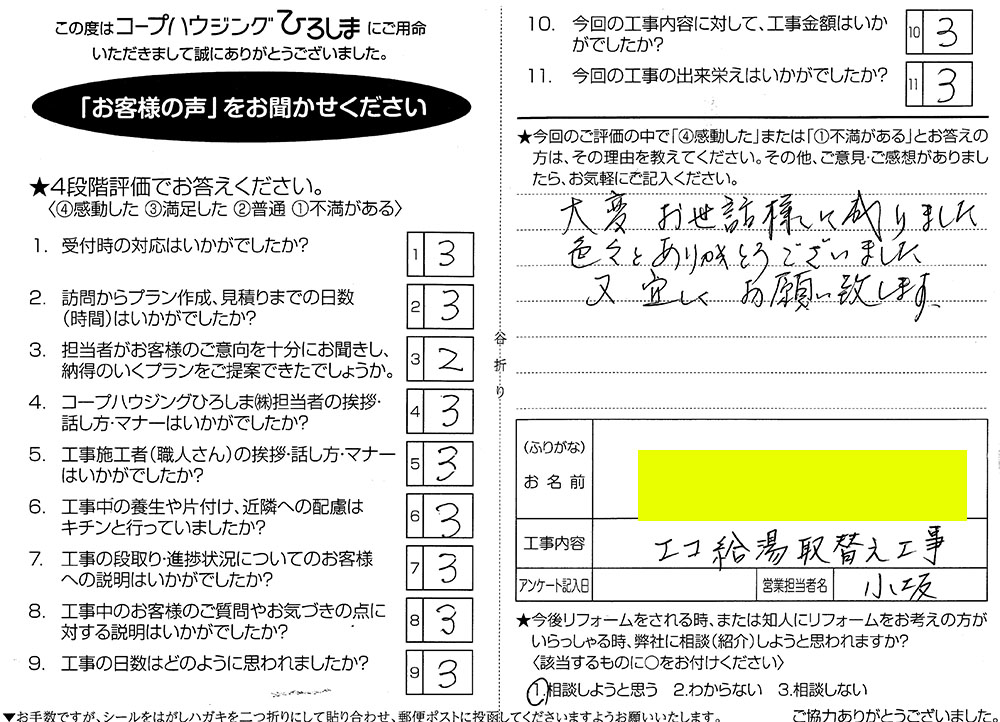 この度はコープハウジングひろしまにご用命
いただきまして誠にありがとうございました。
「お客様の声」をお聞かせください
★4段階評価でお答えください。
〈④感動した ③満足した ②普通 ①不満がある〉
1. 受付時の対応はいかがでしたか?
1 3
2. 訪問からプラン作成、見積りまでの日数
（時間）はいかがでしたか?
2 3
3. 担当者がお客様のご意向を十分にお聞きし、
納得のいくプランをご提案できたでしょうか。
3 2
4. コープハウジングひろしま㈱担当者の挨拶・
話し方・マナーはいかがでしたか?
4 3
5. 工事施工者（職人さん）の挨拶・話し方・マナー
はいかがでしたか?
5 3
6. 工事中の養生や片付け、近隣への配慮は
キチンと行っていましたか?
6 3
7. 工事の段取り・進捗状況についてのお客様
への説明はいかがでしたか?
7 3
8. 工事中のお客様のご質問やお気づきの点に
対する説明はいかがでしたか?
8 3
9. 工事の日数はどのように思われましたか?
9 3
谷折り
10. 今回の工事内容に対して、工事金額はいか
がでしたか?
10 3
11. 今回の工事の出来栄えはいかがでしたか?
11 3
★今回のご評価の中で「④感動した」または「①不満がある」とお答えの
方は、その理由を教えてください。その他、ご意見・ご感想がありまし
たら、お気軽にご記入ください。
大変 お世話様にて成りました
色々とありがとうございました
又 宜しく お願い致します、
（ふりがな）
お名前
工事内容 エコ給湯取替え工事
アンケート記入日 営業担当者名 小坂
★今後リフォームをされる時、または知人にリフォームをお考えの方が
いらっしゃる時、弊社に相談（紹介）しようと思われますか?
〈該当するものに○をお付けください〉
1.相談しようと思う 2.わからない 3.相談しない
▼お手数ですが、シールをはがしハガキを二つ折りにして貼り合わせ、郵便ポストに投函してくださいますようお願いいたします。 ご協力ありがとうございました。